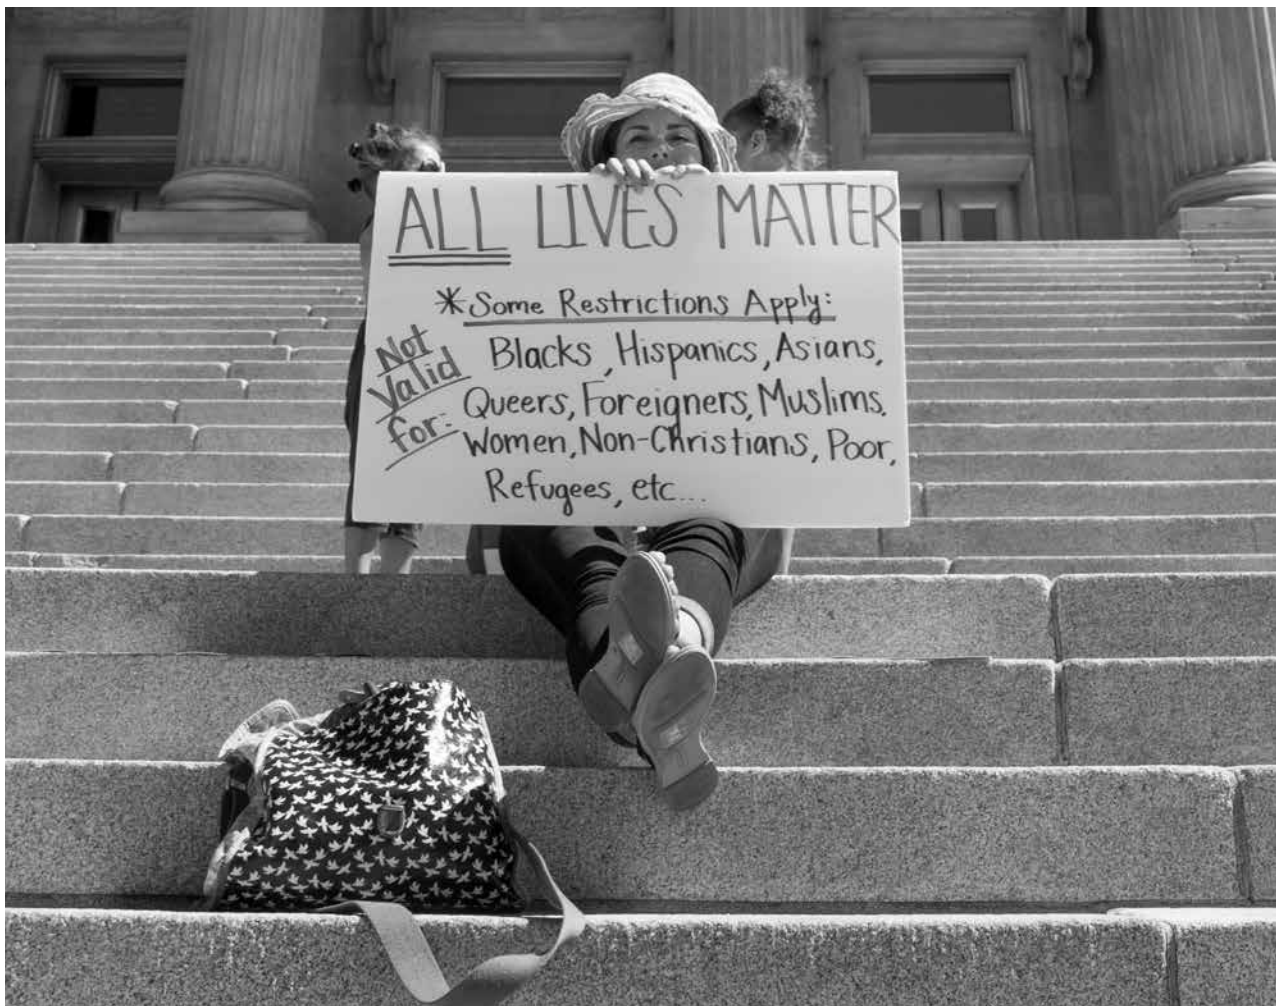 ALL LIVES MATTER
*Some Restrictions Apply:
Not
Valid
for:
Blacks, Hispanics, Asians,
Queers, Foreigners, Muslims.
Women, Non-Christians, Poor,
Refugees, etc...